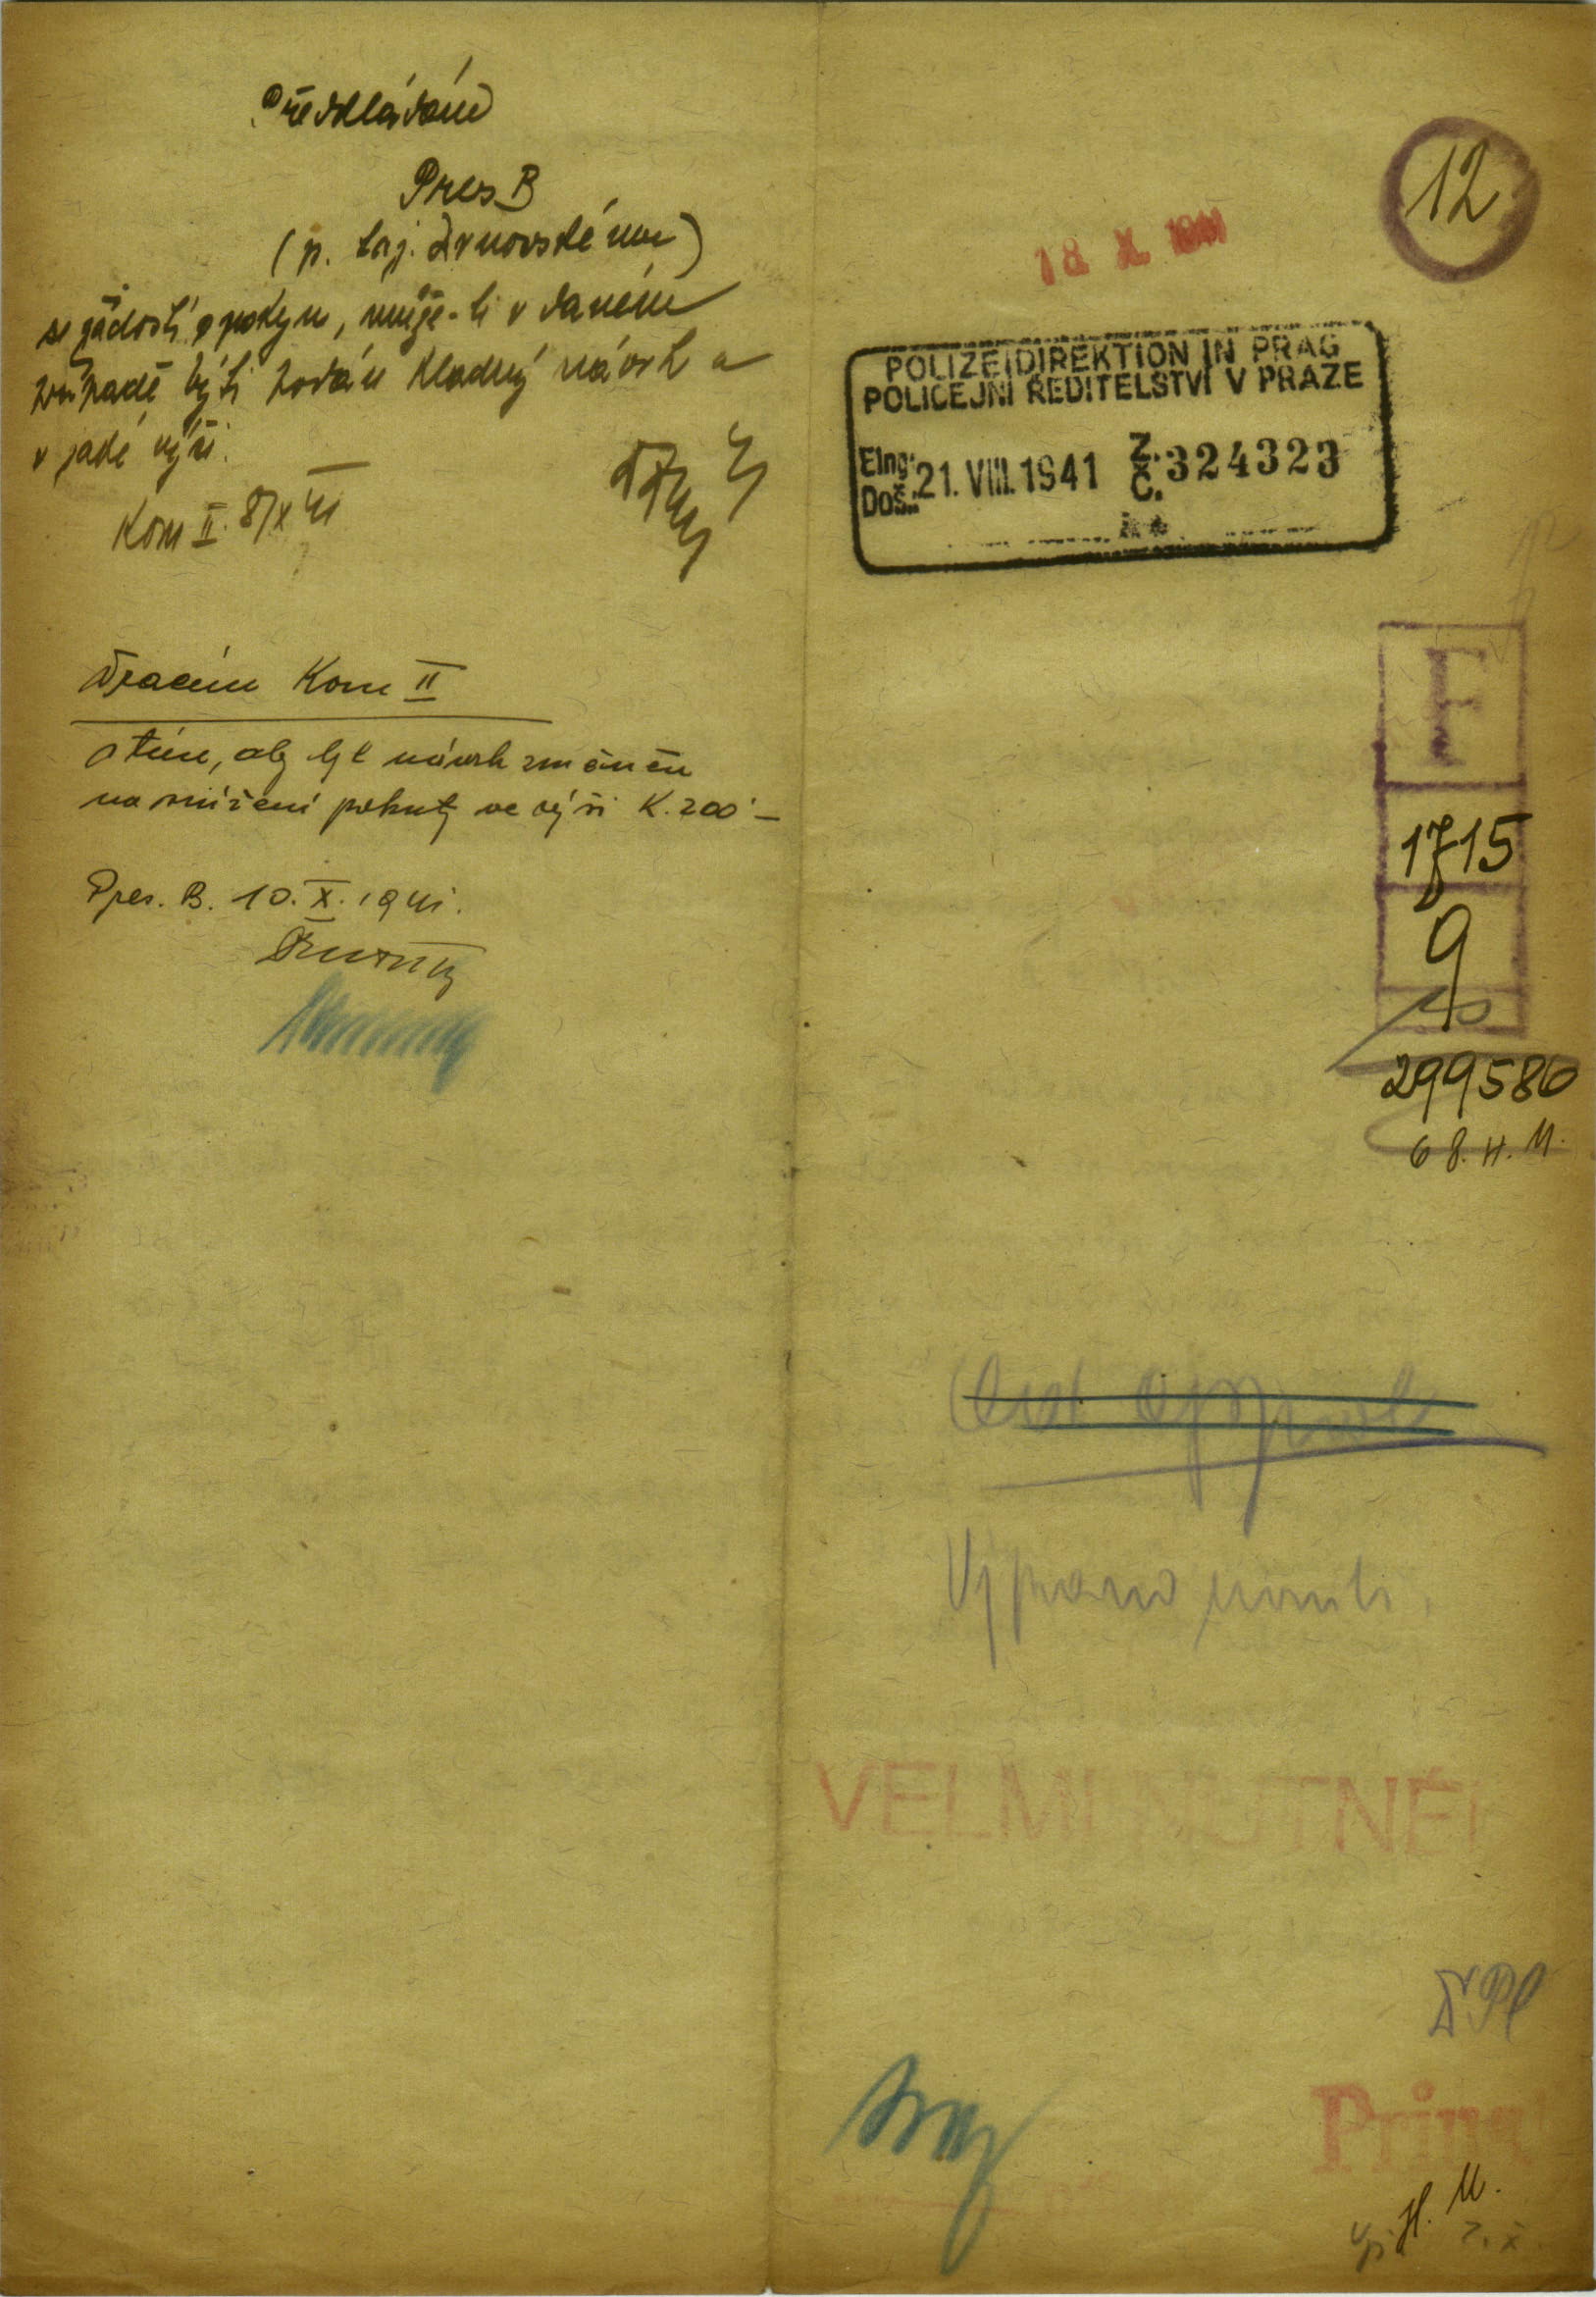 Předkládám
Pres B
(p. taj. Drnovskému)
se žádostí o pokyn, může-li v daném
případě býti podán kladný návrh a
v jaké výši.
Kom II. 8/X 41
Vracím Kom II
s tím, aby byl návrh změněn
na snížení pokuty ve výši K. 200'-
Pres. B. 10. X. 1941.
12
18. X. 1941
POLIZEIDIREKTION IN PRAG
POLICEJNÍ ŘEDITELSTVÍ V PRAZE
Eing.: Doš.: 21. VIII. 1941 Z. Č. 324323
F
1715
9
299580
VELMI NUTNÉ!